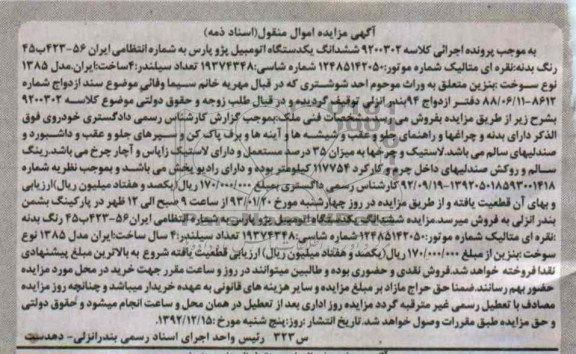 آگهی مزایده اموال منقول(اسناد ذمه)
به موجب پرونده اجرائی کلاسه ۹۲۰۰۳۰۲ ششدانگ یکدستگاه اتومبیل پژو پارس به شماره انتظامی ایران ۵۶-۴۲۳ب۴۵
رنگ بدنه:نقره ای متالیک شماره موتور:۱۲۴۸۵۱۴۲۰۵۰ شماره شاسی:۱۹۳۷۴۳۴۸ تعداد سیلندر:۴ساخت:ایران.مدل ۱۳۸۵
نوع سوخت :بنزین متعلق به وراث موحوم احد شوشتری که در قبال مهریه خانم سیما وفائی موضوع سند ازدواج شماره
۸۶۱۲-۸۸/۰۶/۱۱ دفتر ازدواج ۹۴بندر انزلی توقیف گردیده و در قبال طلب زوجه و حقوق دولتی موضوع کلاسه ۹۲۰۰۳۰۲
بشرح زیر از طریق مزایده بفروش می رسد مشخصات فنی ملک:بموجب گزارش کارشناس رسمی دادگستری خودروی فوق
الذکر دارای بدنه و چراغها و راهنمای جلو و عقب و شیشه ها و آینه ها و برف پاک کن و سپرهای جلو و عقب و داشبورد و
صندلیهای سالم می باشد.لاستیک و چرخها به میزان ۳۵ درصد مستعمل و دارای لاستیک زاپاس و آچار چرخ می باشد.رینگ
سالم و روکش صندلیهای داخل چرم و کارکرد ۱۱۷۷۵۴ کیلومتر بوده و دارای رادیو پخش می باشد و بموجب نظریه شماره
۱۳۹۲۰۵۰۱۸۵۹۳۰۰۱۴۱۸-۹۲/۰۹/۱۹ کارشناس رسمی داگستری بمبلغ ۱۷۰/۰۰۰/۰۰۰ ریال(یکصد و هفتاد میلیون ریال)ارزیابی
و بهای آن قطعیت یافته و از طریق مزایده در روز چهارشنبه مورخ ۹۳/۰۱/۲۰ از ساعت ۹ صبح الی ۱۲ ظهر در پارکینگ بشمن
بندر انزلی به فروش میرسد.مزایده ششدانگ یکدستگاه اتومبیل پژو پارس به شماره انتظامی ایران ۵۶-۴۲۳ب۴۵ رنگ بدنه
:نقره ای متالیک شماره موتور:۱۲۴۸۵۱۴۲۰۵۰شماره شاسی:۱۹۳۷۴۳۴۸ تعداد سیلندر:۴ سال ساخت:ایران مدل ۱۳۸۵ نوع
سوخت:بنزین از مبلغ ۱۷۰/۰۰۰/۰۰۰ ریال(یکصد و هفتاد میلیون ریال) ارزیابی قطعیت یافته شروع به بالاترین مبلغ پیشنهادی
نقدا فروخته خواهد شد.فروش نقدی و حضوری بوده و طالبین میتوانند در روز و ساعت مقرر جهت خرید در محل مورد مزایده
حضور بهم رسانند.ضمنا حق حراج مازاد بر مبلغ مزایده و سایر هزینه های قانونی به عهده خریدار میباشد و چنانچه روز مزایده
مصادف با تعطیل رسمی غیر مترقبه گردد مزایده روز اداری بعد از تعطیل در همان محل و ساعت انجام میشود و حقوق دولتی
و حق مزایده طبق مقررات وصول خواهد شد.تاریخ انتشار :روز:پنج شنبه مورخ :۱۳۹۲/۱۲/۱۵.
س۳۲۳ رئیس واحد اجرای اسناد رسمی بندرانزلی- دهدست